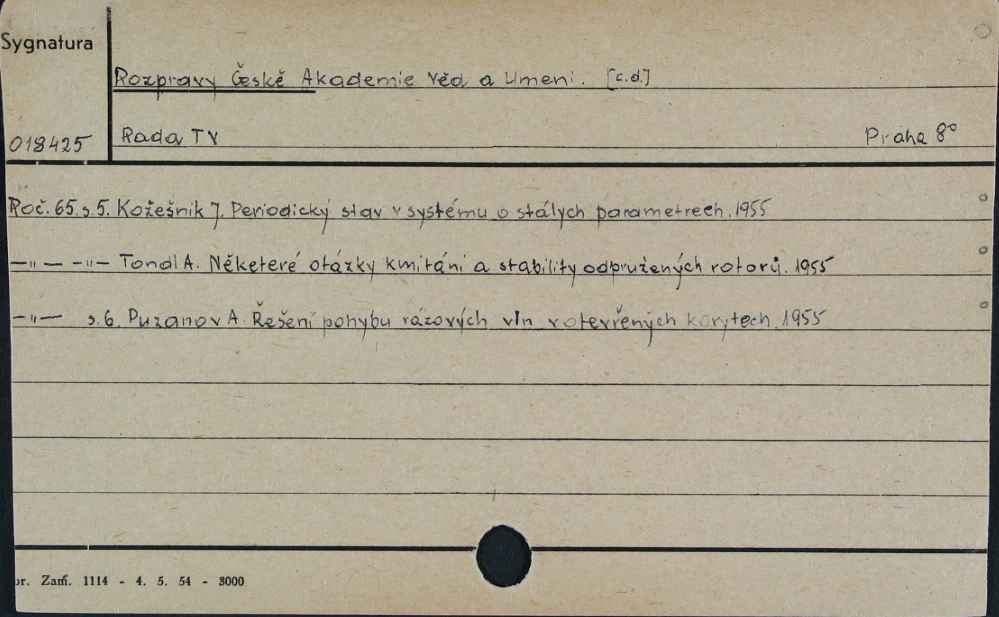 Sygnatura
Rozpravy České Akademie Věd a Umeni. [c.d.]
018425 Rada TV Praha 8°
Roč. 65. s. 5. Kožešnik J. Periodický stav v systému o stálych parametrech. 1955
—"— —"— Tondl A. Něketeré otázky kmitáni a stability odpružených rotorů. 1955
—"— s. 6. Puzanov A. Řešení pohybu rázových vln v otevřených korytech. 1955
or. Zam. 1114 - 4. 5. 54 - 3000